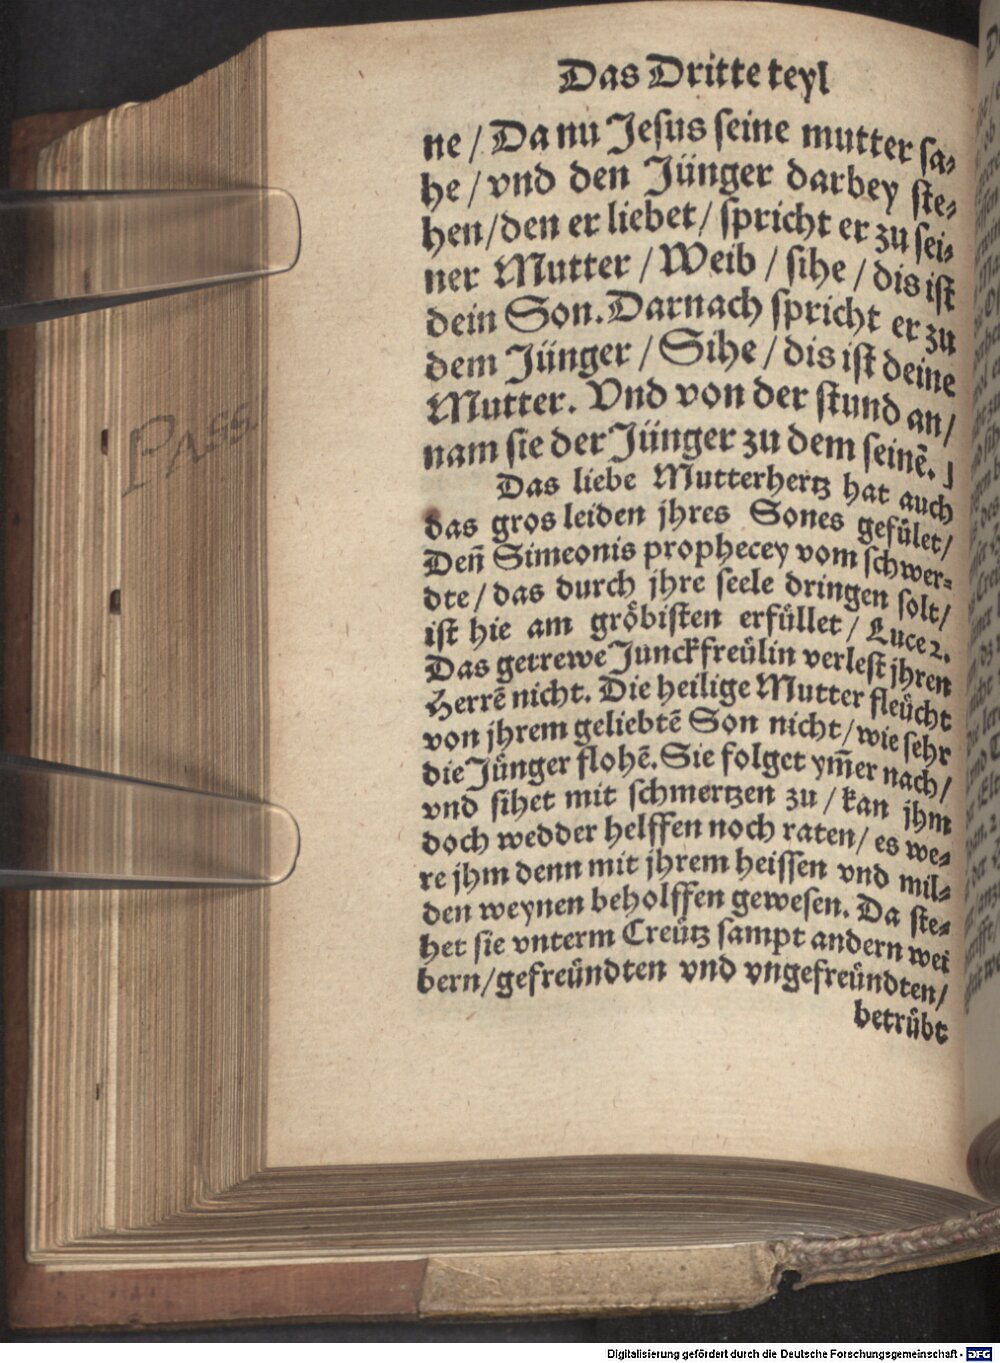 Das Dritte teyl
ne / Da nu Jesus seine mutter sa⸗
he / vnd den Jünger darbey ste⸗
hen/den er liebet/ spricht er zu sei⸗
ner Mutter / Weib / sihe / dis ist
dein Son. Darnach spricht er zu
dem Jünger / Sihe / dis ist deine
Mutter. Vnd von der stund an/
nam sie der Jünger zu dem seinẽ. ⌋
Das liebe Mutterhertz hat auch
das gros leiden jhres Sones gefület/
Deñ Simeonis prophecey vom schwer⸗
dte / das durch jhre seele dringen solt/
ist hie am gröbisten erfüllet / Luce 2.
Das getrewe Junckfreülin verlest jhren
Herrẽ nicht. Die heilige Mutter fleücht
von jhrem geliebtẽ Son nicht/ wie sehr
die Jünger flohẽ. Sie folget ym̃er nach/
vnd sihet mit schmertzen zu / kan jhm
doch wedder helffen noch raten/ es we⸗
re jhm denn mit jhrem heissen vnd mil⸗
den weynen beholffen gewesen. Da ste⸗
het sie vnterm Creütz sampt andern wei
bern/gefreündten vnd vngefreündten/
betrübt
PASS.
Digitalisierung gefördert durch die Deutsche Forschungsgemeinschaft - DFG